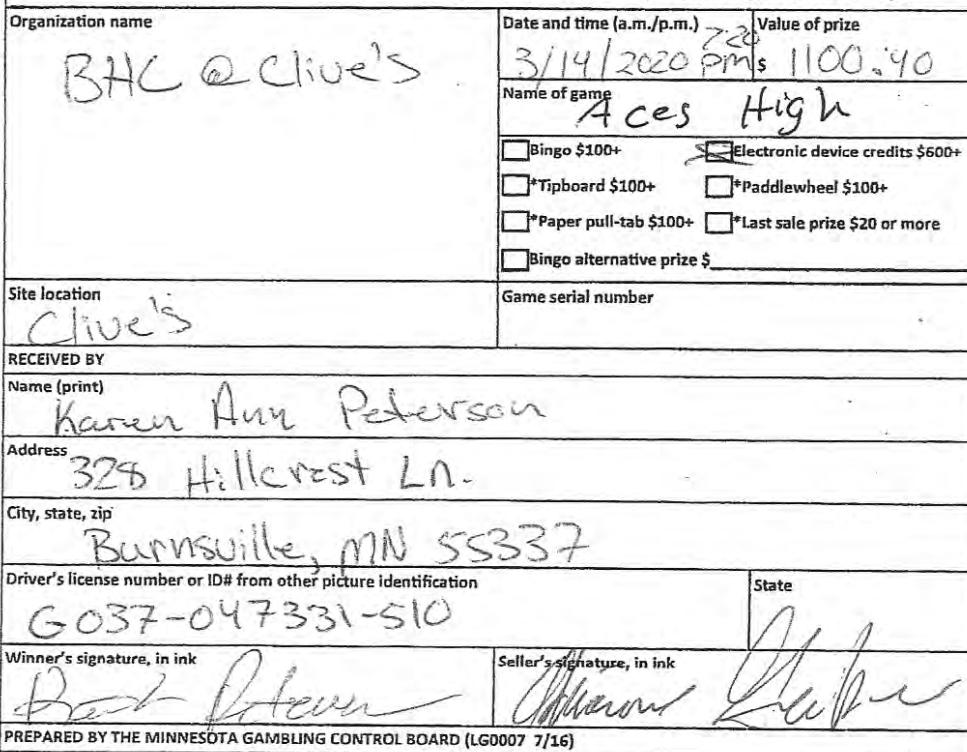 Organization name
BHC @ Clive's
Date and time (a.m./p.m.)
7:20
3/14/2020 pm
Value of prize
$ 1100.40
Name of game
Aces High
Bingo $100+
Electronic device credits $600+
*Tipboard $100+
*Paddlewheel $100+
*Paper pull-tab $100+
*Last sale prize $20 or more
Bingo alternative prize $
Site location
Clive's
Game serial number
RECEIVED BY
Name (print)
Karen Ann Peterson
Address
328 Hillcrest Ln.
City, state, zip
Burnsville, MN 55337
Driver's license number or ID# from other picture identification
G037-047331-510
State
Winner's signature, in ink
Seller's signature, in ink
PREPARED BY THE MINNESOTA GAMBLING CONTROL BOARD (LG0007 7/16)